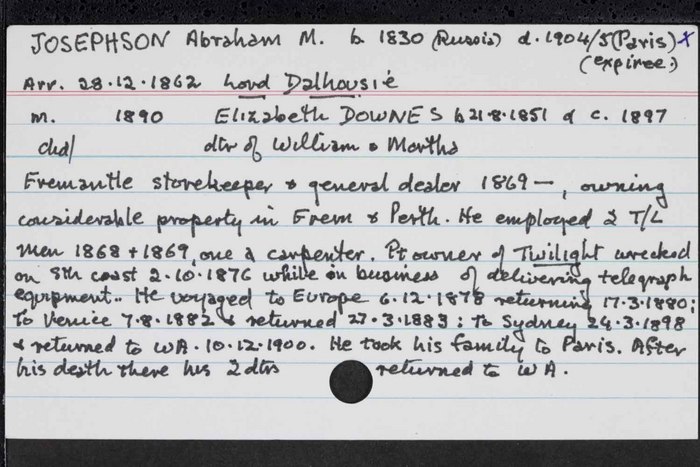 JOSEPHSON Abraham M. b 1830 (Russia) d. 1904/5 (Paris) x
(expiree)
Arr. 28.12.1862 Lord Dalhousie
m. 1890 Elizabeth DOWNES b 21.8.1851 d c. 1897
chd/ dtr of William & Martha
Fremantle storekeeper & general dealer 1869 —, owning
considerable property in Frem & Perth. He employed 2 T/L
men 1868 + 1869, one a carpenter. Pt owner of Twilight wrecked
on Sth coast 2.10.1876 while on business of delivering telegraph
equipment.. He voyaged to Europe 6.12.1878 returning 17.3.1880:
To Venice 7.8.1882 & returned 27.3.1883: To Sydney 24.3.1898
& returned to WA. 10.12.1900. He took his family to Paris. After
his death there his 2 dtrs returned to WA.